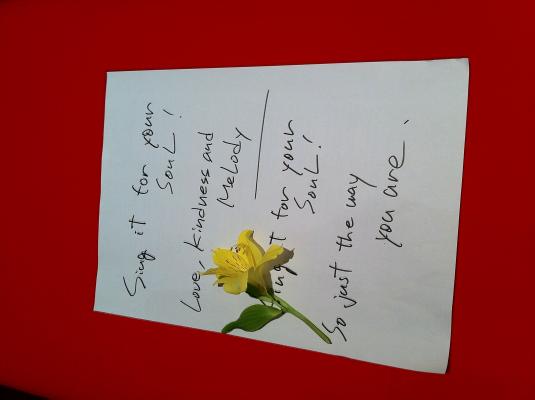 Sing it for your
SouL!
Love, kindness and
MeLody
ing t for your
SouL!
So just the way
you are.